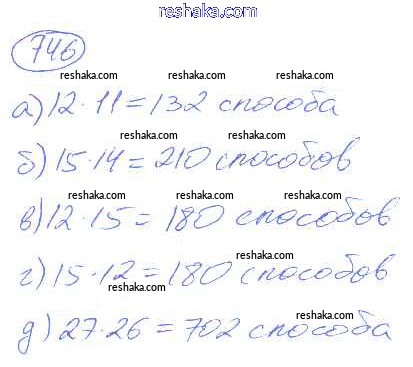 reshaka.com
746
reshaka.com reshaka.com reshaka.com
а) 12·11=132 способа
reshaka.com reshaka.com
б) 15·14=210 способов
reshaka.com reshaka.com reshaka.com
в) 12·15=180 способов
reshaka.com reshaka.com
г) 15·12=180 способов
reshaka.com
reshaka.com reshaka.com
д) 27·26=702 способа